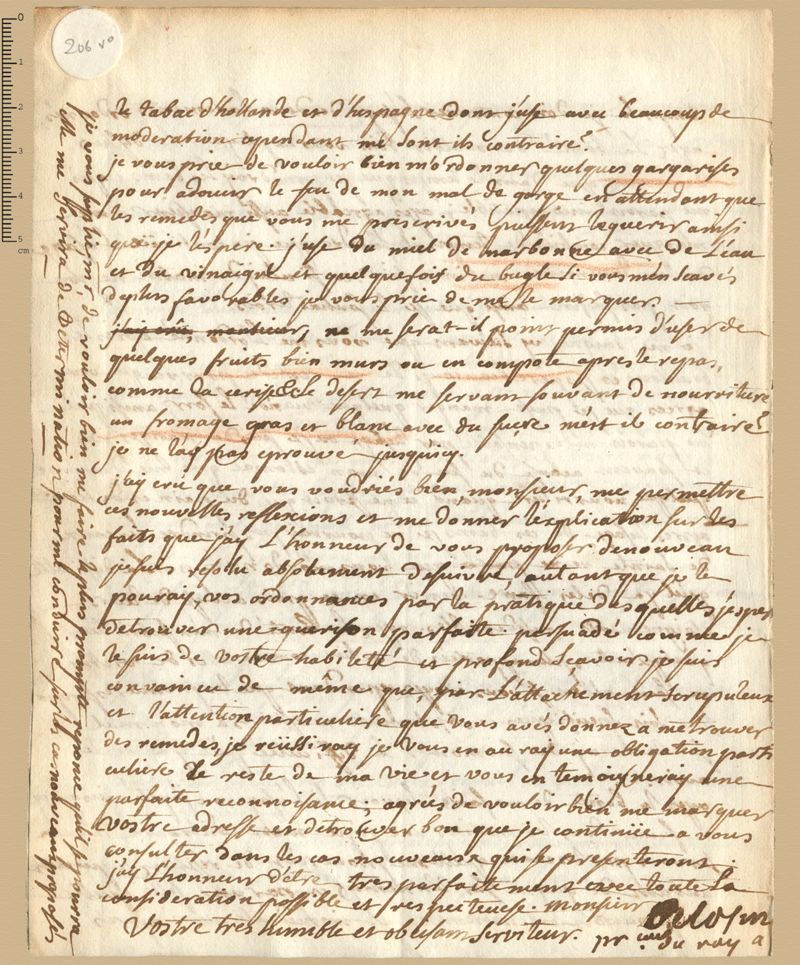 206 vo
le tabac d'hollande et d'hespagne dont j'use avec beaucoup de
moderation cependant me sont ils contraire?
je vous prie de vouloir bien m'ordonner quelques gargarises
pour adoucir le feu de mon mal de gorge en attendant que
les remedes que vous me prescrivés puissent le guerir ainsi
que je l'éspere. j'use du miel de narbonne avec de l'eau
et du vinaigre et quelquefois du bugle si vous m'en scavés
de plus favorables je vous prie de me le marquer
j'ay crû, monsieur, ne me serat-il point permis d'user de
quelques fruits bien murs ou en compote apres le repas,
comme la cerise &c le desert me servant souvant de nourriture
un fromage gras et blanc avec du sucre m'ést il contraire?
je ne l'ay pas eprouvé jusqu'icy.
j'ay crû que vous voudriés bien, monsieur, me permettre
ces nouvelles reflexions et me donner l'explication sur les
faits que j'ay L'honneur de vous proposer denouveau
je suis resolu absolument de suivre, autant que je le
pouray, vos ordonnances par la pratique des quelles j'esper
de trouver une guerison parfaite persuadé comme je
le suis de vostre habileté et profond scavoir je suis
convaincu de même que, par L'attachement scrupuleux
et l'attention particuliere que vous avés donnez a me trouver
des remedes, je reüssiray je vous en auray une obligation parti
culiere le reste de ma vie et vous en temoigneray une
parfaite reconnoisance; agrées de vouloir bien me marquer
vostre adresse et de trouver bon que je continüe a vous
consulter dans les cas nouveaux qui se presenteront
j'ay L'honneur d'etre tres parfaitement avec toute la
consideration possible et respectueuse. monsieur
Vostre tres humble et obeisant serviteur.
pr du roy a
je vous supplie mr. de vouloir bien me faire la plus prompte reponce qu'il se pourra
elle me servira de determination pour me conduire sur les cas nouveaux proposés